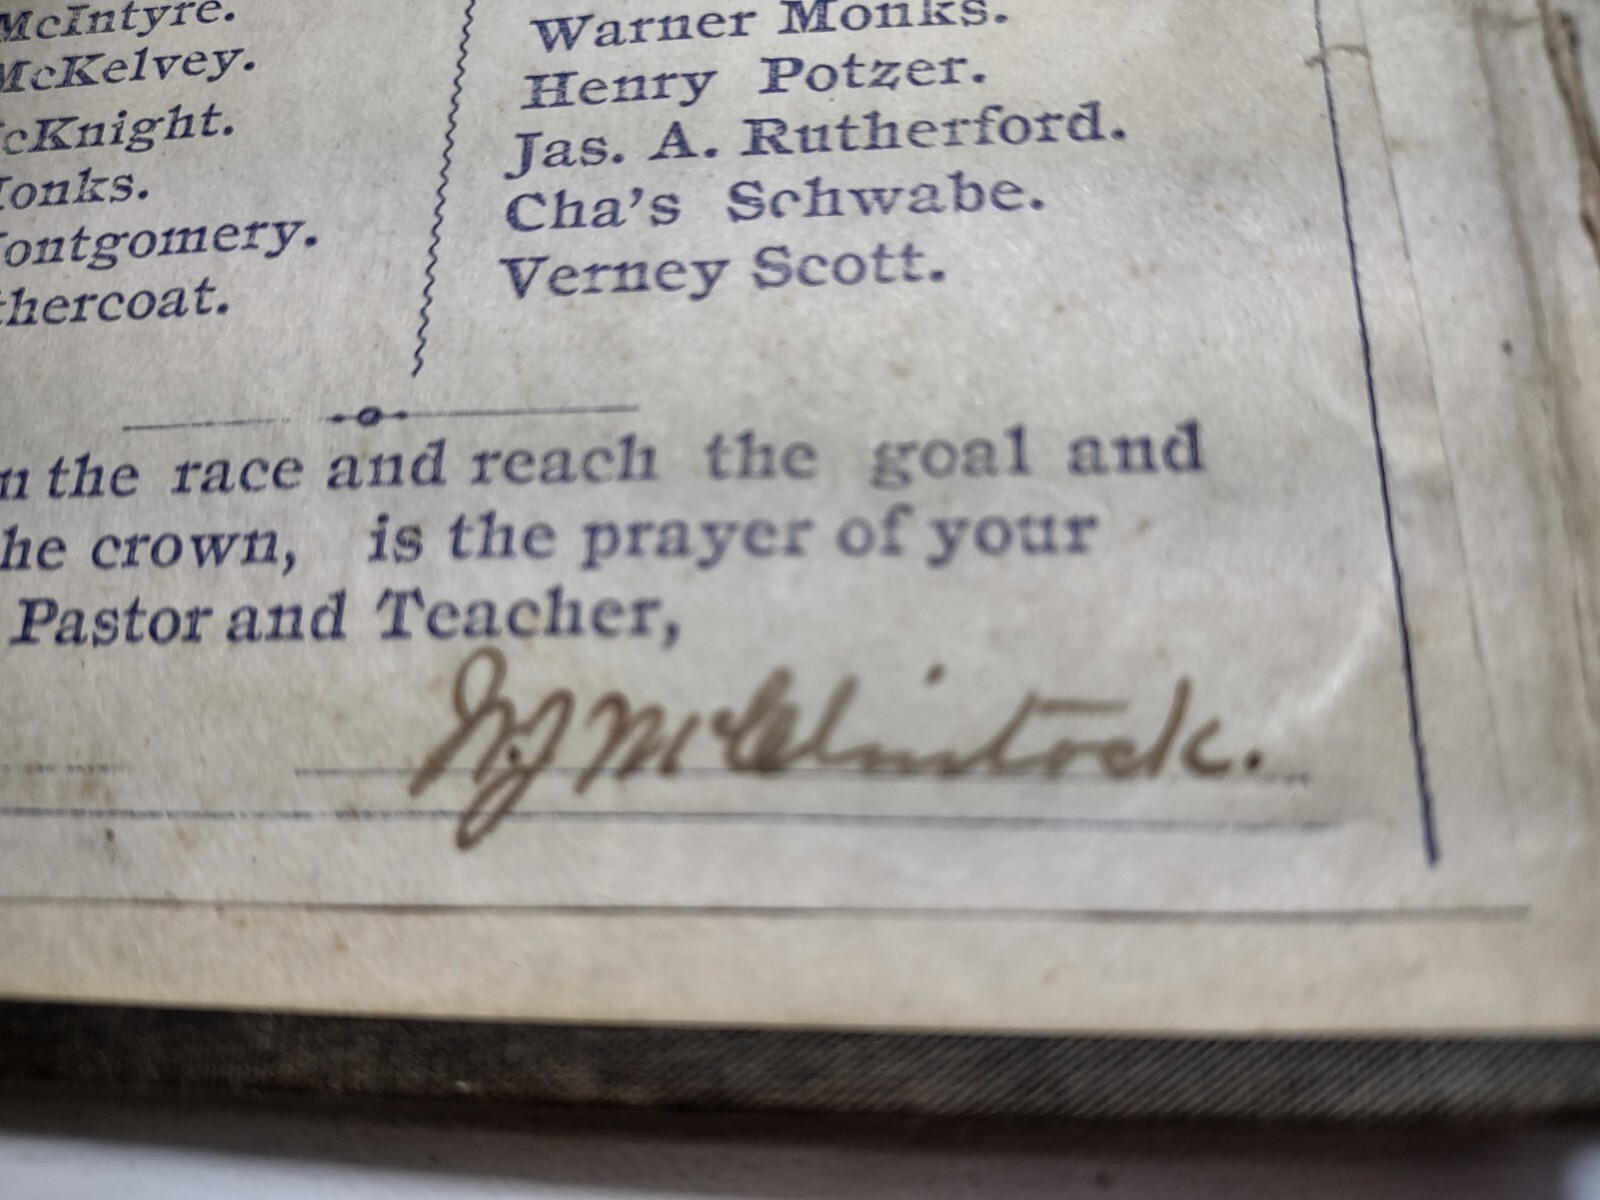 McIntyre.
McKelvey.
cKnight.
onks.
ontgomery.
thercoat.
Warner Monks.
Henry Potzer.
Jas. A. Rutherford.
Cha's Schwabe.
Verney Scott.
n the race and reach the goal and
he crown, is the prayer of your
Pastor and Teacher,
McClintock.